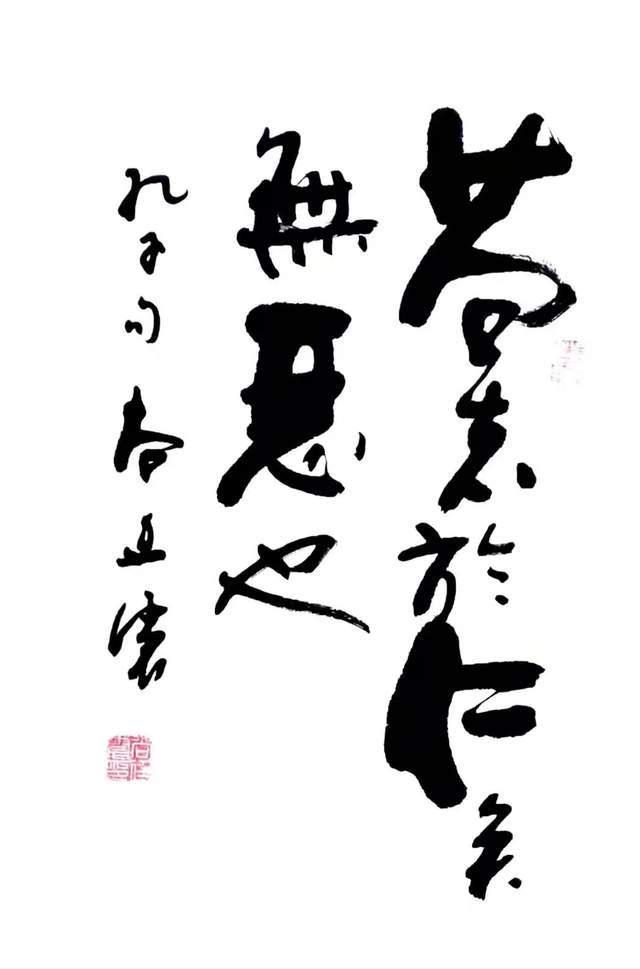 苟志於仁矣
無惡也
孔子句